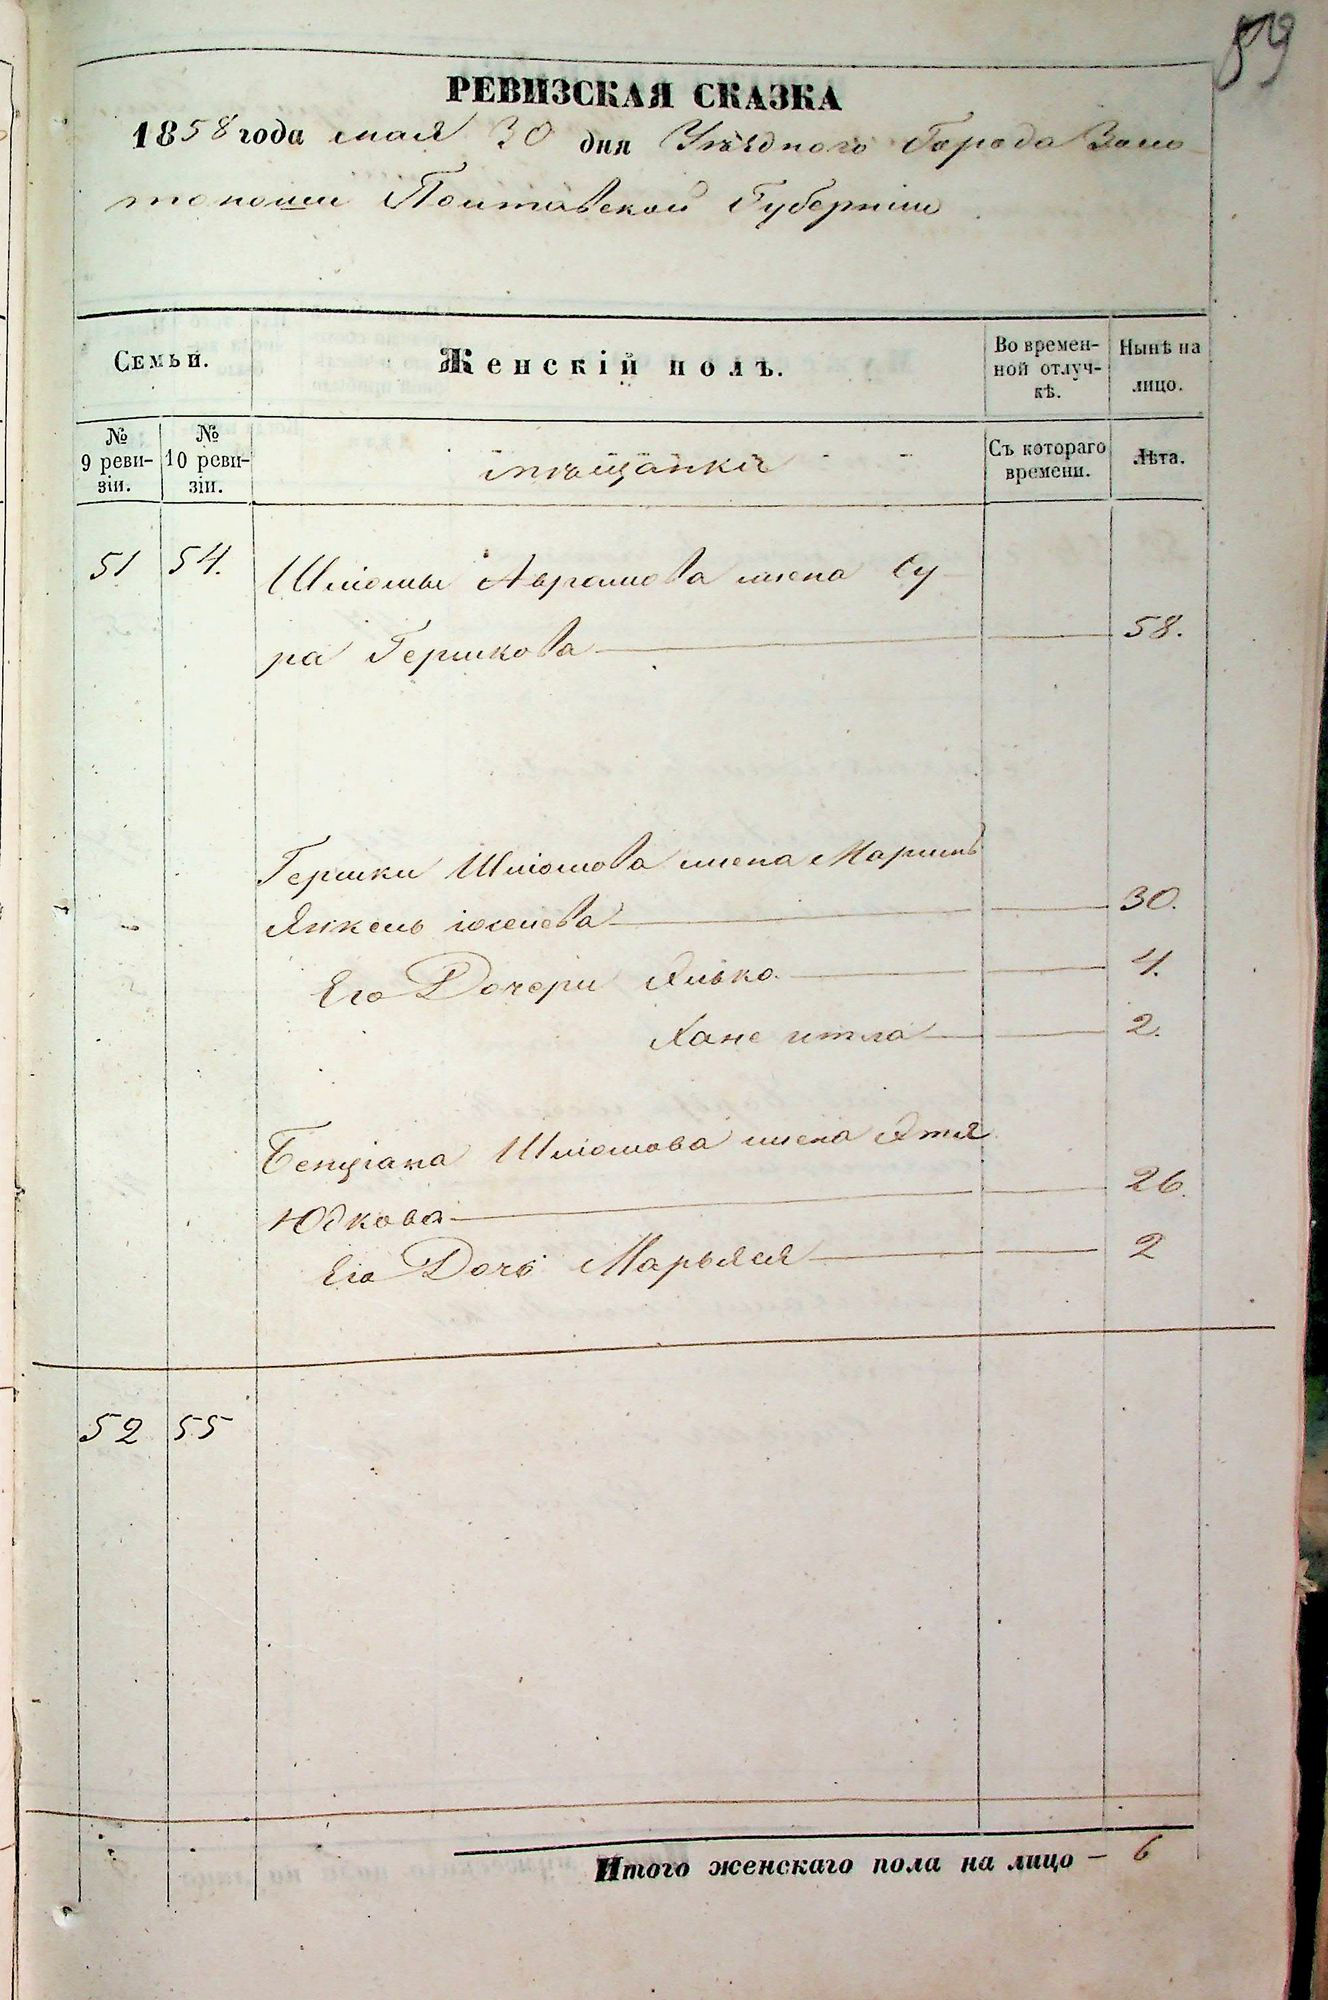 59
РЕВИЗСКАЯ СКАЗКА
1858 года мая 30 дня Уѣзднаго Города Золо
тоноши Полтавской Губерніи
Семьи.
Женскій полъ.
Во времен-
ной отлуч-
кѣ.
Нынѣ на
лицо.
№
9 реви-
зіи.
№
10 реви-
зіи.
мѣщанки
Съ котораго
времени.
Лѣта.
51 54. Шліомы Аврамова жена Су
ра Гершкова 58.
Гершки Шліомова жена
Янкель 30.
Его Дочери 4.
Хане итла 2.
Бенціана Шліомова жена
Юдкова 26.
Его Дочь Марьяся 2
52 55
Итого женскаго пола на лицо – 6